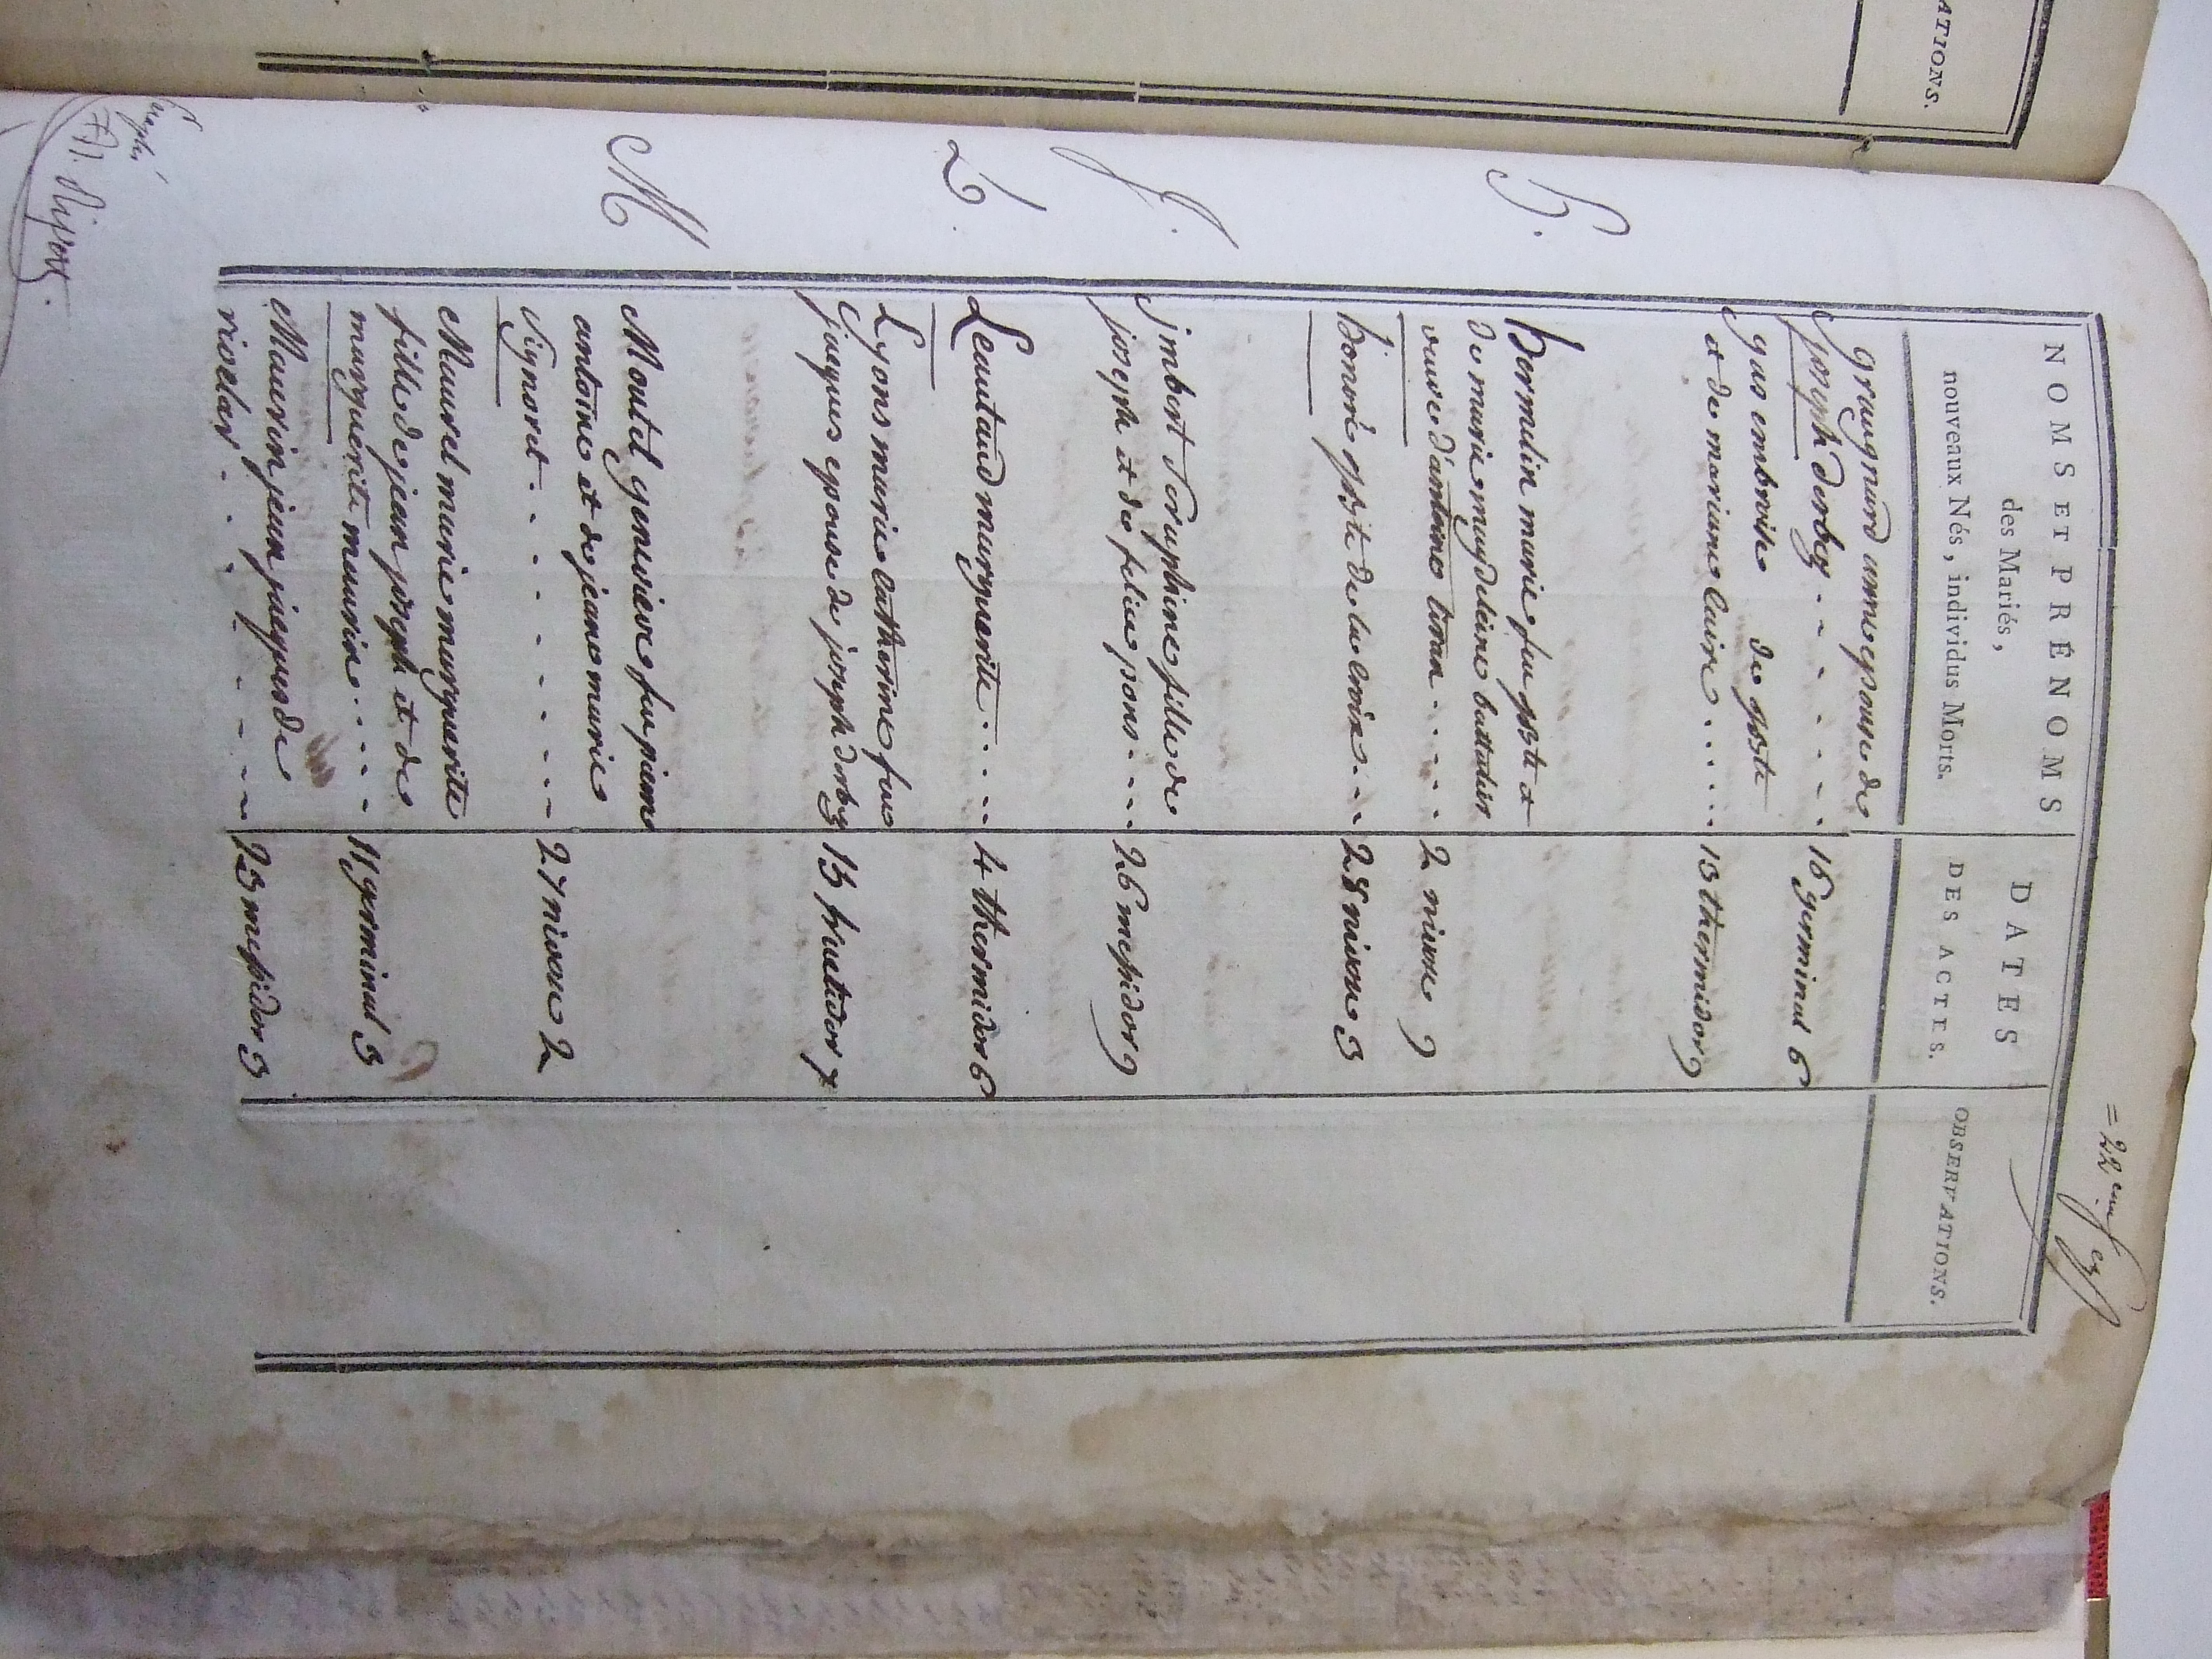 ATIONS.
= 22eme
NOMS ET PRÉNOMS
des Mariés,
nouveaux Nés, individus Morts.
DATES
DES ACTES.
OBSERVATIONS.
graugnard anne epouse de
joseph dorbey - - - - - - 16 germinal 6
gas embroise de jbste
et de mariane Claire . . . . . 13 thermidor 9
H.
hermelin marie fue jbste et
de marie magdeleine
veuve d'antoine . . . . . 2 nivose 9
honoré jbste de la Croix . - - 28 nivose 3
J.
jmbert Seraphine fille de
joseph et de felice pons . . - - . 26 messidor 9
L.
Leautaud marguerite . . . - - 4 thermidor 6
Lyons marie Catherine fue
jacques epouse de joseph dorbey 13 fructidor 7
M
Moutet genevieve fue pierre
antoine et de jeane marie
Signoret . . - - - - - - - - 27 nivose 2
Maurel marie marguerite
fille de jean joseph et de
marguerite maurin . . . - - 11 germinal 3
Maurin jean jacques de
. . . - - - - 23 messidor 3